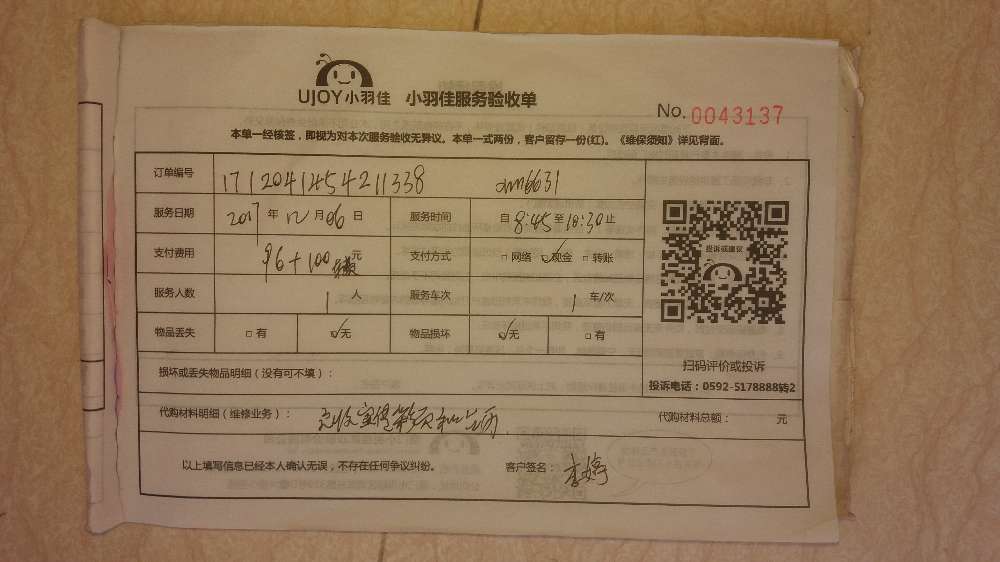 UJOY小羽佳 小羽佳服务验收单
No. 0043137
本单一经核签，即视为对本次服务验收无异议。本单一式两份，客户留存一份(红)。《维保须知》详见背面。
订单编号 171204145421338
服务日期 2017年12月06日 服务时间 自8:45至18:30止
支付费用 96+100元 支付方式 □网络 ☑现金 □转账
服务人数 1人 服务车次 1车/次
物品丢失 □有 ☑无 物品损坏 ☑无 □有
损坏或丢失物品明细（没有可不填）：
代购材料明细（维修业务）： 代购材料总额： 元
以上填写信息已经本人确认无误，不存在任何争议纠纷。 客户签名：李婷
投诉或建议
扫码评价或投诉
投诉电话：0592-5178888转2